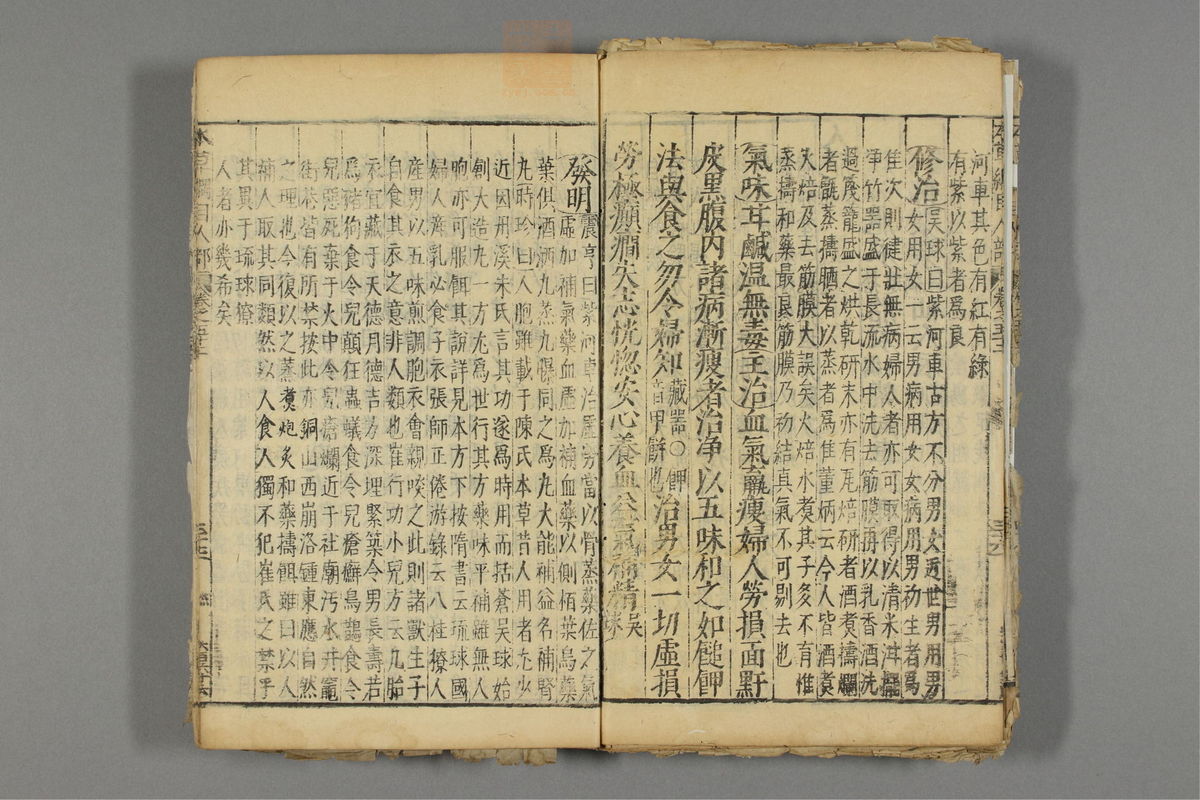 河車其色有紅有綠
有紫以紫者爲良
修治吳球曰紫河車古方不分男女近世男用男
女用女一云男病用女女病用男初生者爲
佳次則健壯無病婦人者亦可取得以清米泔擺
淨竹器盛于長流水中洗去筋膜再以乳香酒洗
過篾籠盛之烘乾研末亦有瓦焙研者酒煮擣爛
者甑蒸擣晒者以蒸者爲佳董炳云今人皆酒煮
火焙及去筋膜大誤矣火焙水煮其子多不育惟
蒸擣和藥最良筋膜乃初結真氣不可剔去也
氣味甘鹹温無毒主治血氣羸瘦婦人勞損面䵟
皮黑腹内諸病漸瘦者治淨以五味和之如䭔䭅
法與食之勿令婦知藏器○䭅音甲餅也治男女一切虛損
勞極癲癇失志恍惚安心養血益氣補精吳球
發明震亨曰紫河車治虛勞當以骨蒸藥佐之氣
虛加補氣藥血虛加補血藥以側栢葉烏藥
葉俱酒洒九蒸九曝同之爲丸大能補益名補腎
丸時珍曰人胞雖載于陳氏本草昔人用者尤少
近因丹溪朱氏言其功遂爲時用而括蒼吳球始
創大造丸一方尤爲世行其方藥味平補雖無人
胞亦可服餌其說詳見本方下按隋書云琉球國
婦人產乳必食子衣張師正倦游錄云八桂獠人
産男以五味煎調胞衣會親啖之此則諸獸生子
自食其衣之意非人類也崔行功小兒方云凡胎
衣宜藏于天德月德吉方深埋緊築令男長壽若
爲猪狗食令兒顛狂蟲蟻食令兒瘡癬鳥鵲食令
兒惡死棄于火中令兒瘡爛近于社廟汚水井竈
街巷皆有所禁按此亦銅山西崩洛鍾東應自然
之理也今復以之蒸煮炮炙和藥擣餌雖曰以人
補人取其同類然以人食人獨不犯崔氏之禁乎
其異于琉球獠
人者亦幾希矣